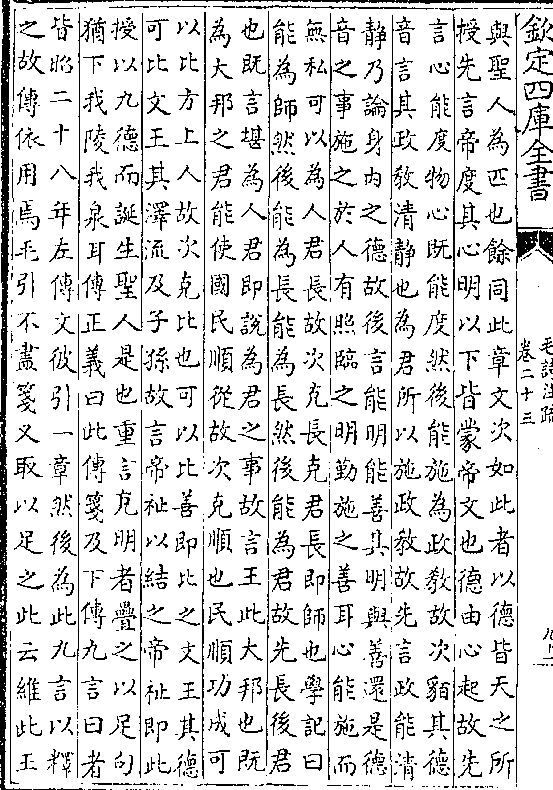 欽定四庫全書
毛詩注疏
卷二十三
與聖人為匹也餘同此章文次如此者以德皆天之所
授先言帝度其心明以下皆蒙帝文也德由心起故先
言心能度物心既能度然後能施為政教故次貊其德
音言其政教清靜也為君所以施政教故先言政能清
靜乃論身内之德故後言能明能善其明與善還是德
音之事施之於人有照臨之明勤施之善耳心能施而
無私可以為人君長故次克長克君長即師也學記曰
能為師然後能為長能為長然後能為君故先長後君
也既言堪為人君即説為君之事故言王此大邦也既
為大邦之君能使國民順從故次克順也民順功成可
以比方上人故次克比也可以比善即比之文王其德
可比文王其澤流及子孫故言帝祉以結之帝祉即此
授以九德而誕生聖人是也重言克明者疊之以足句
猶下我陵我泉耳傳正義曰此傳箋及下傳九言曰者
皆昭二十八年左傳文彼引一章然後為此九言以釋
之故傳依用焉毛引不盡箋又取以足之此云維此王